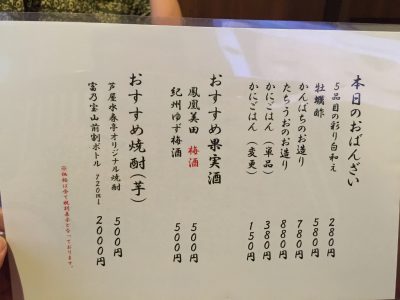 本日のおばんざい
5品目の彩り白和え 280円
牡蠣酢 580円
かんぱちのお造り 780円
たちうおのお造り 880円
かにごはん（単品） 380円
かにごはん（変更） 150円
おすすめ果実酒
鳳凰美田 梅酒 500円
紀州ゆず梅酒 500円
おすすめ焼酎（芋）
芦屋水春亭オリジナル焼酎 500円
富乃宝山前割ボトル 720ml 2000円
※価格は全て税別表示となっております。